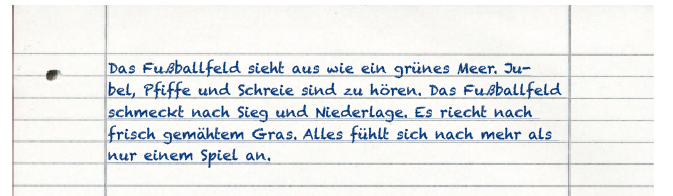 Das Fußballfeld sieht aus wie ein grünes Meer. Ju-
bel, Pfiffe und Schreie sind zu hören. Das Fußballfeld
schmeckt nach Sieg und Niederlage. Es riecht nach
frisch gemähtem Gras. Alles fühlt sich nach mehr als
nur einem Spiel an.